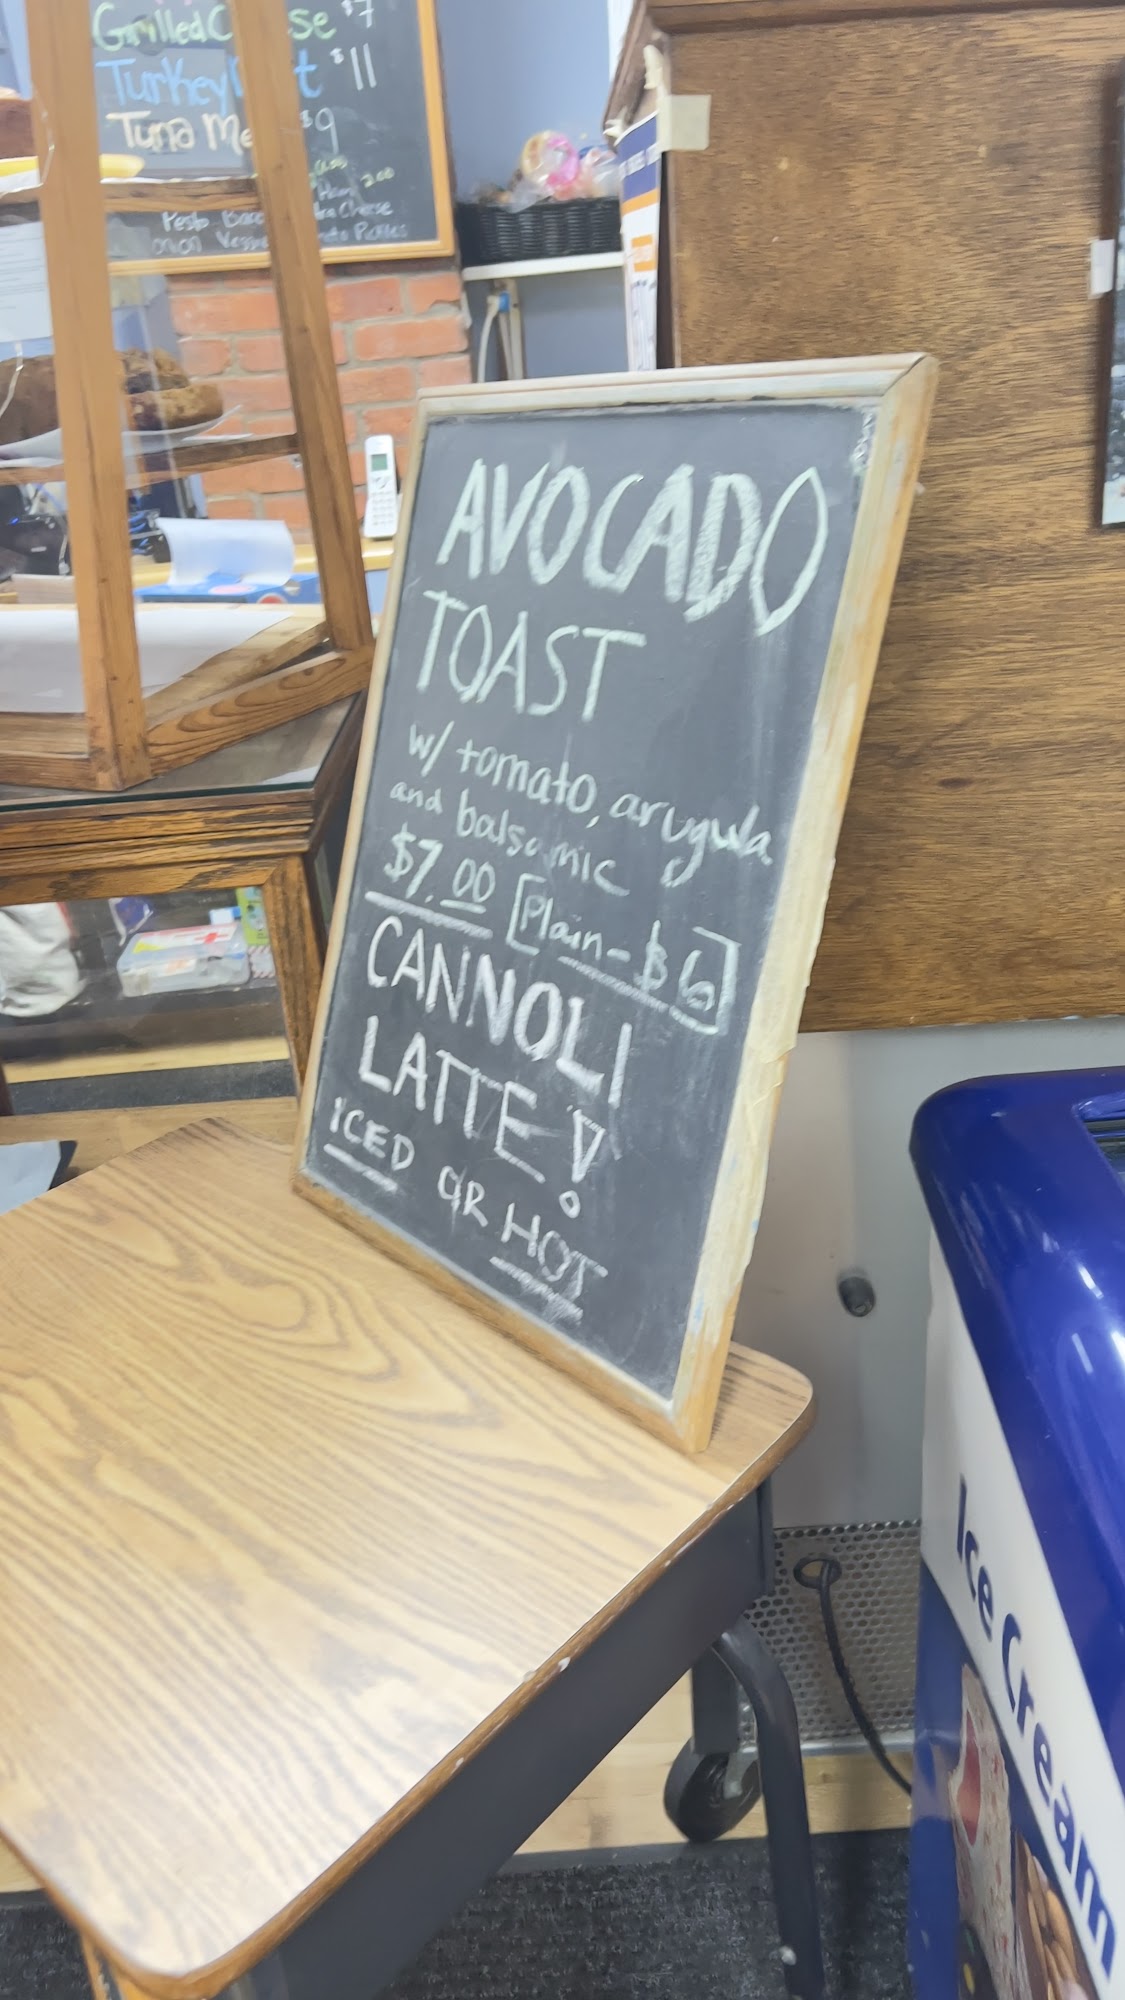 Grilled Cheese $7
Turkey $11
Tuna Me $9
2.00
Pesto Cheese
onion Pickles
AVOCADO
TOAST
w/ tomato, arugula
and balsamic
$7.00 [Plain-$6]
CANNOLI
LATTE!
ICED OR HOT
Ice Cream